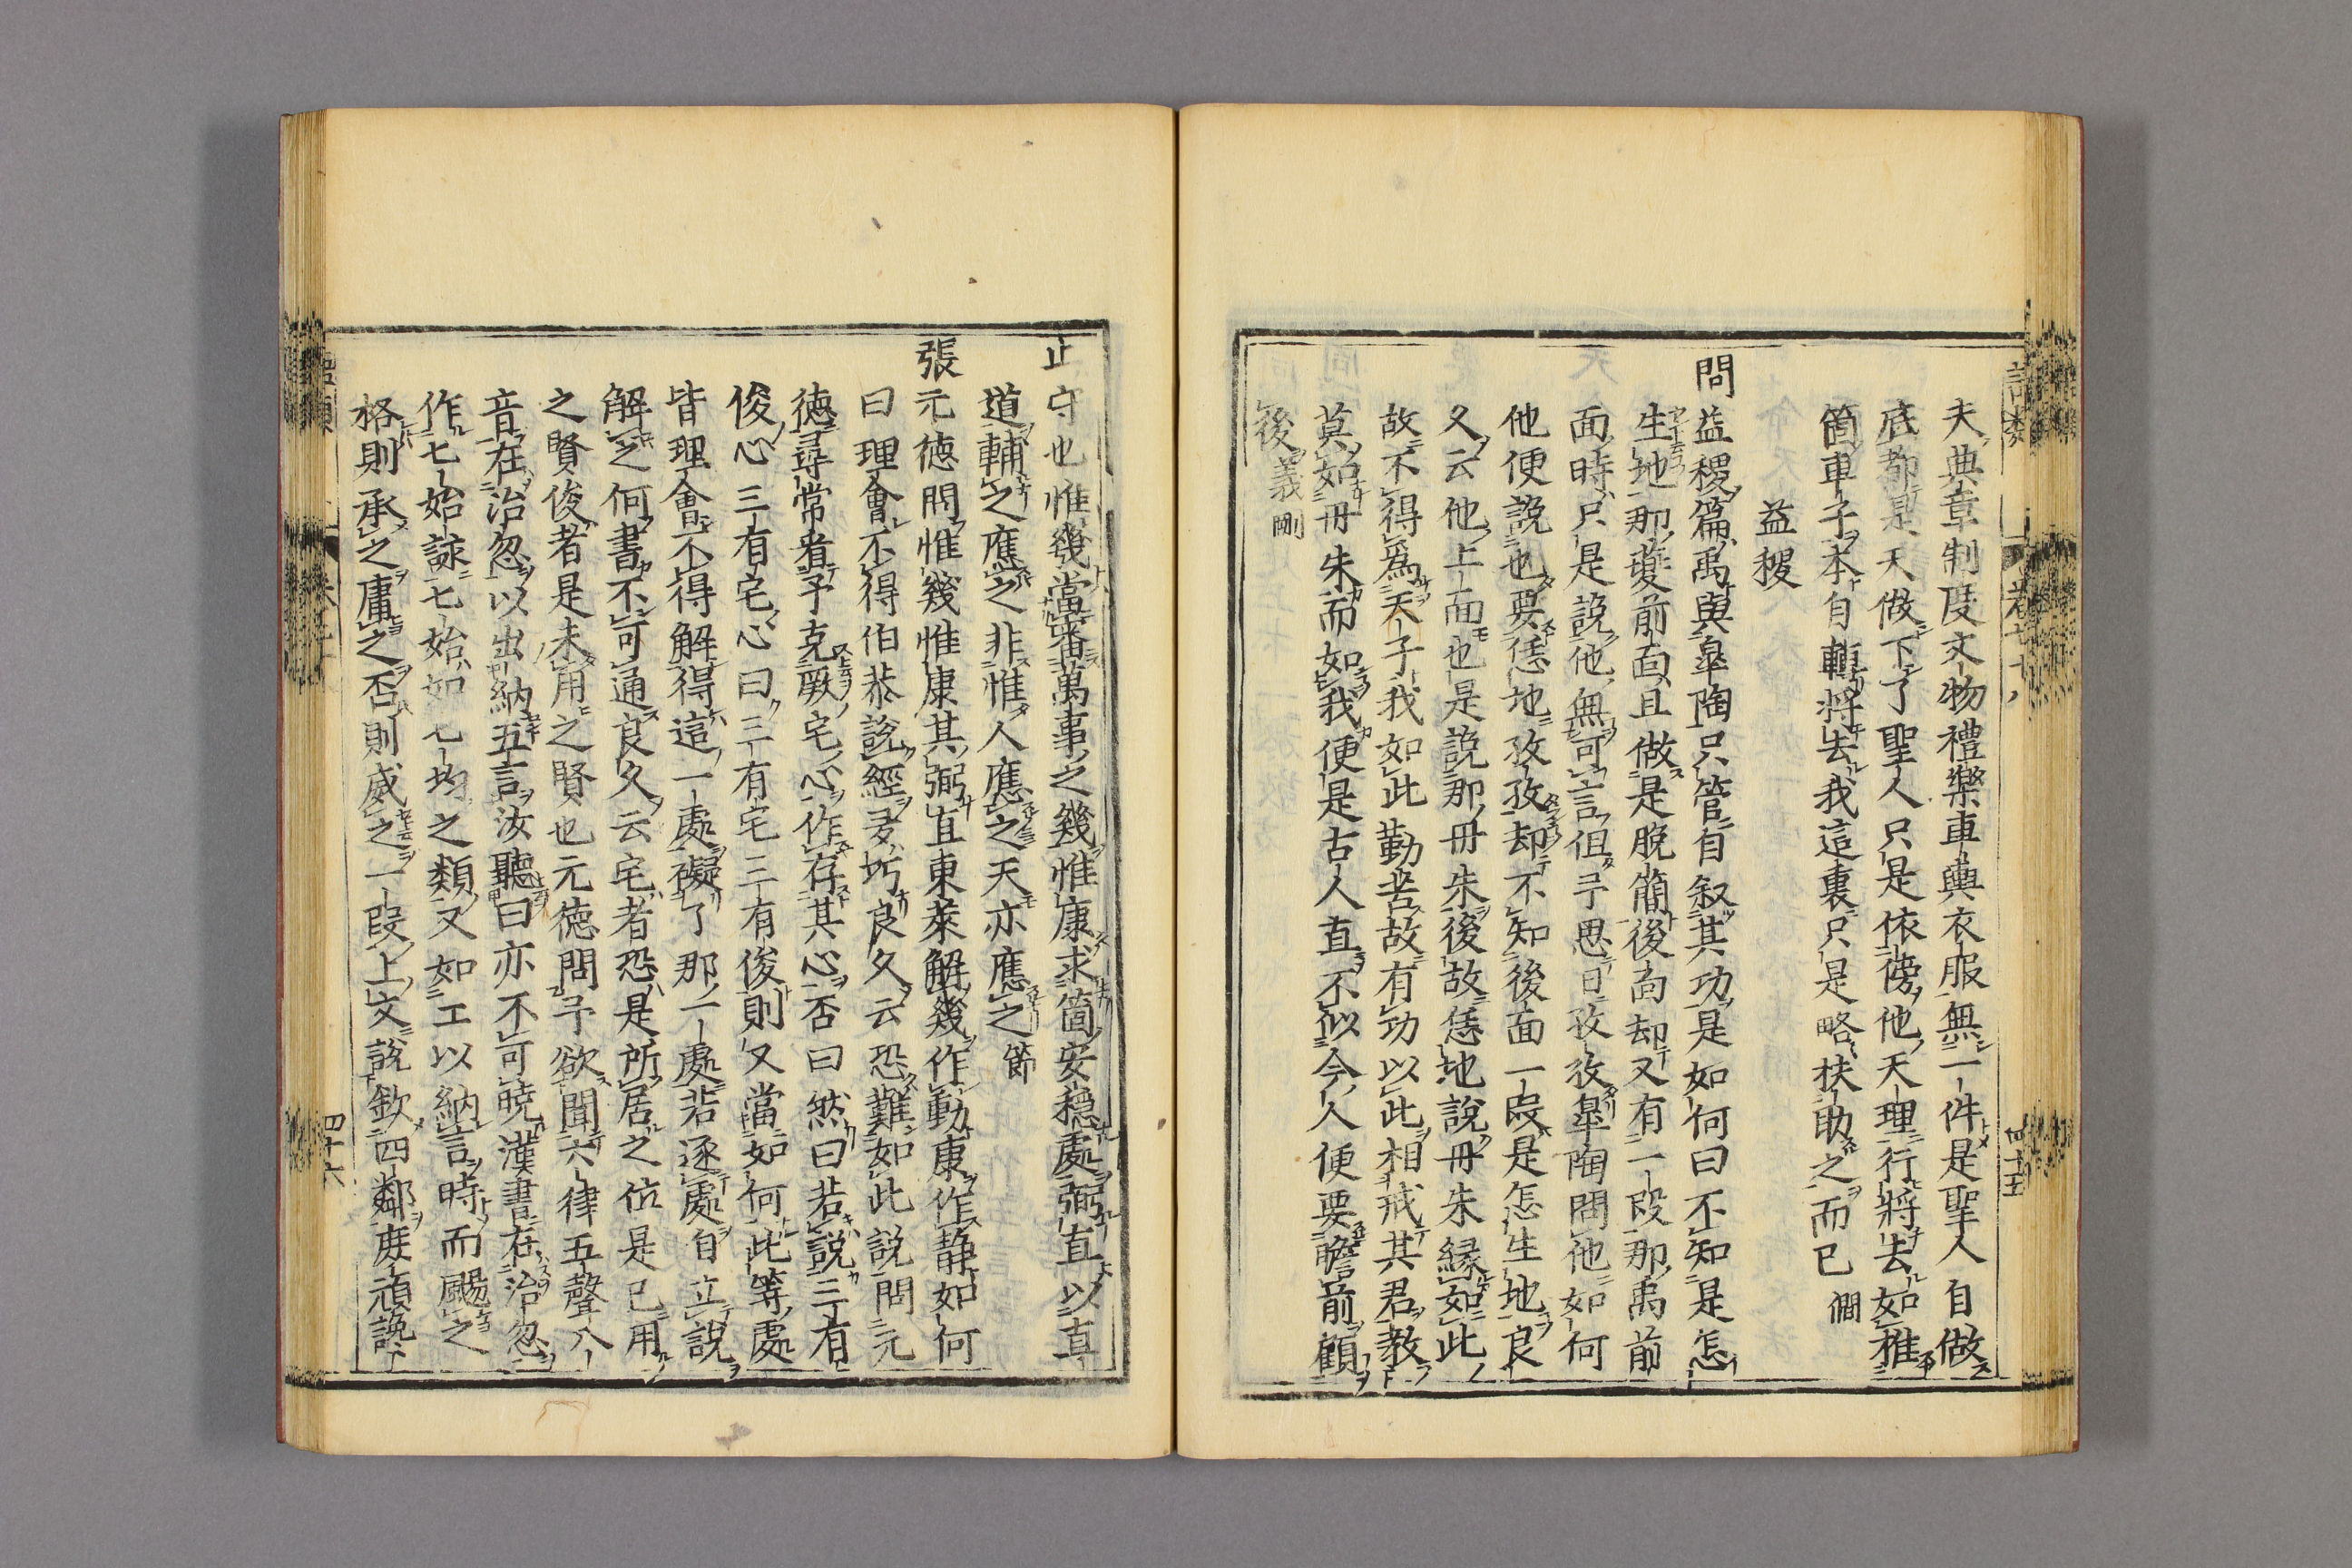 夫典章制度文物禮樂車輿衣服無一件是聖人自做
底都是天做下了聖人只是依傍他天理行將去如推
箇車子本自轉將去我這裏只是略扶助之而已 僩
益稷
問益稷篇禹與皐陶只管自叙其功是如何曰不知是怎
生地那夔前面且做是脫簡後面却又有一段那禹前
面時只是說他無可言但予思日孜孜皐陶問他如何
他便說也要恁地孜孜却不知後面一段是怎生地良
久云他上面也是說那丹朱後故恁地說丹朱緣如此
故不得爲天子我如此勤苦故有功以此相戒其君教
莫如丹朱而如我便是古人直不似今人便要瞻前顧
後 義剛
止守也惟幾當審萬事之幾惟康求箇安穩處弼直以直
道輔之應之非惟人應之天亦應之 節
張元德問惟幾惟康其弼直東萊解幾作動康作靜如何
曰理會不得伯恭說經多巧良久云恐難如此說問元
德尋常看予克厥宅心作存其心否曰然曰若說三有
俊心三有宅心曰三有宅三有俊則又當如何此等處
皆理會不得解得這一處礙了那一處若逐處自立說
解之何書不可通良久云宅者恐是所居之位是已用
之賢俊者是未用之賢也元德問予欲聞六律五聲八
音在治忽以出納五言汝聽曰亦不可曉漢書在治忽
作七始詠七始如七均之類又如工以納言時而颺之
格則承之庸之否則威之一段上文說欽四鄰庶頑讒
卷七十八
四十五
四十六